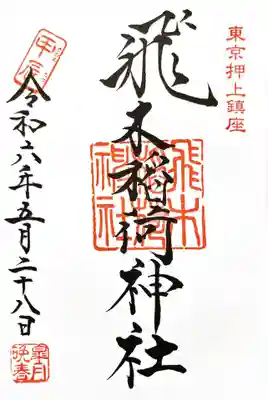 東京押上鎮座
飛木稲荷神社
飛木稲荷神社
甲辰
令和六年五月二十八日
皐月
晩春